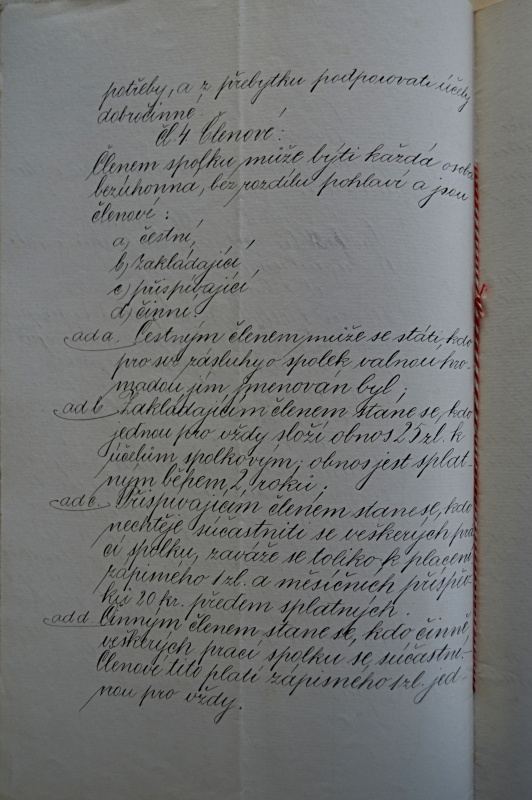 potřeby, a z přebytku podporovati účely
dobročinné.
čl. 4 Členové:
Členem spolku může býti každá osoba
bezúhonná, bez rozdílu pohlaví a jsou
členové:
a, čestní,
b, zakládající,
c, přispívající,
d, činní.
ad a. Čestným členem může se státi, kdo
pro své zásluhy o spolek valnou hro-
madou jím jmenován byl;
ad b. Zakládajícím členem stane se, kdo
jednou pro vždy složí obnos 25 zl. k
účelům spolkovým; obnos jest splat-
ným během 2 roků;
ad c. Přispívajícím členem stane se, kdo
nechtěje súčastniti se veškerých pra
cí spolku, zaváže se toliko k placení
zápisného 1 zl. a měsíčních příspěv-
ků 20 kr. předem splatných.
ad d. Činným členem stane se, kdo činně
veškerých prací spolku se súčastní.
Členové tito platí zápisného 1 zl. jed-
nou pro vždy.